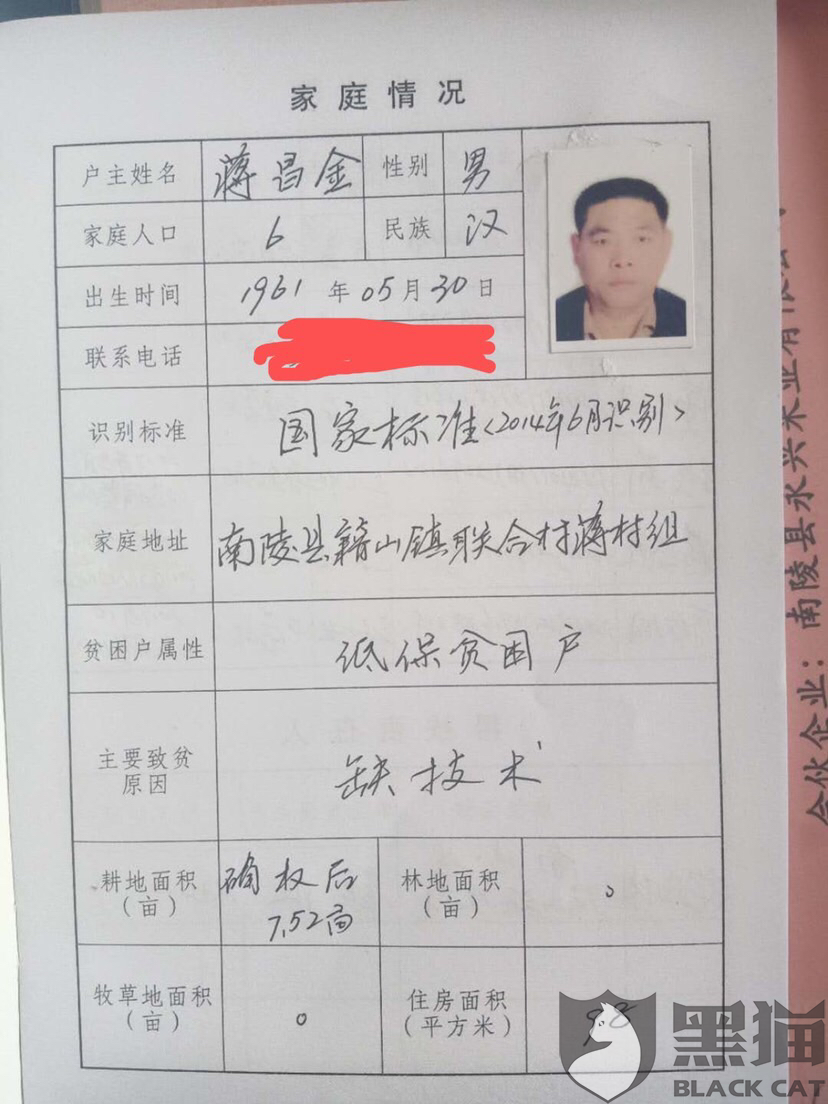 家庭情况
户主姓名 蒋昌金 性别 男
家庭人口 6 民族 汉
出生时间 1961 年 05 月 30 日
联系电话
识别标准 国家标准<2014年6月识别>
家庭地址 南陵县籍山镇联合村蒋村组
贫困户属性 低保贫困户
主要致贫
原因
缺技术
耕地面积
（亩）
确权后
7.52亩
林地面积
（亩）
0
牧草地面积
（亩）
0
住房面积
（平方米）
98
合伙企业：南陵县永兴木业有限公
黑猫
BLACK CAT